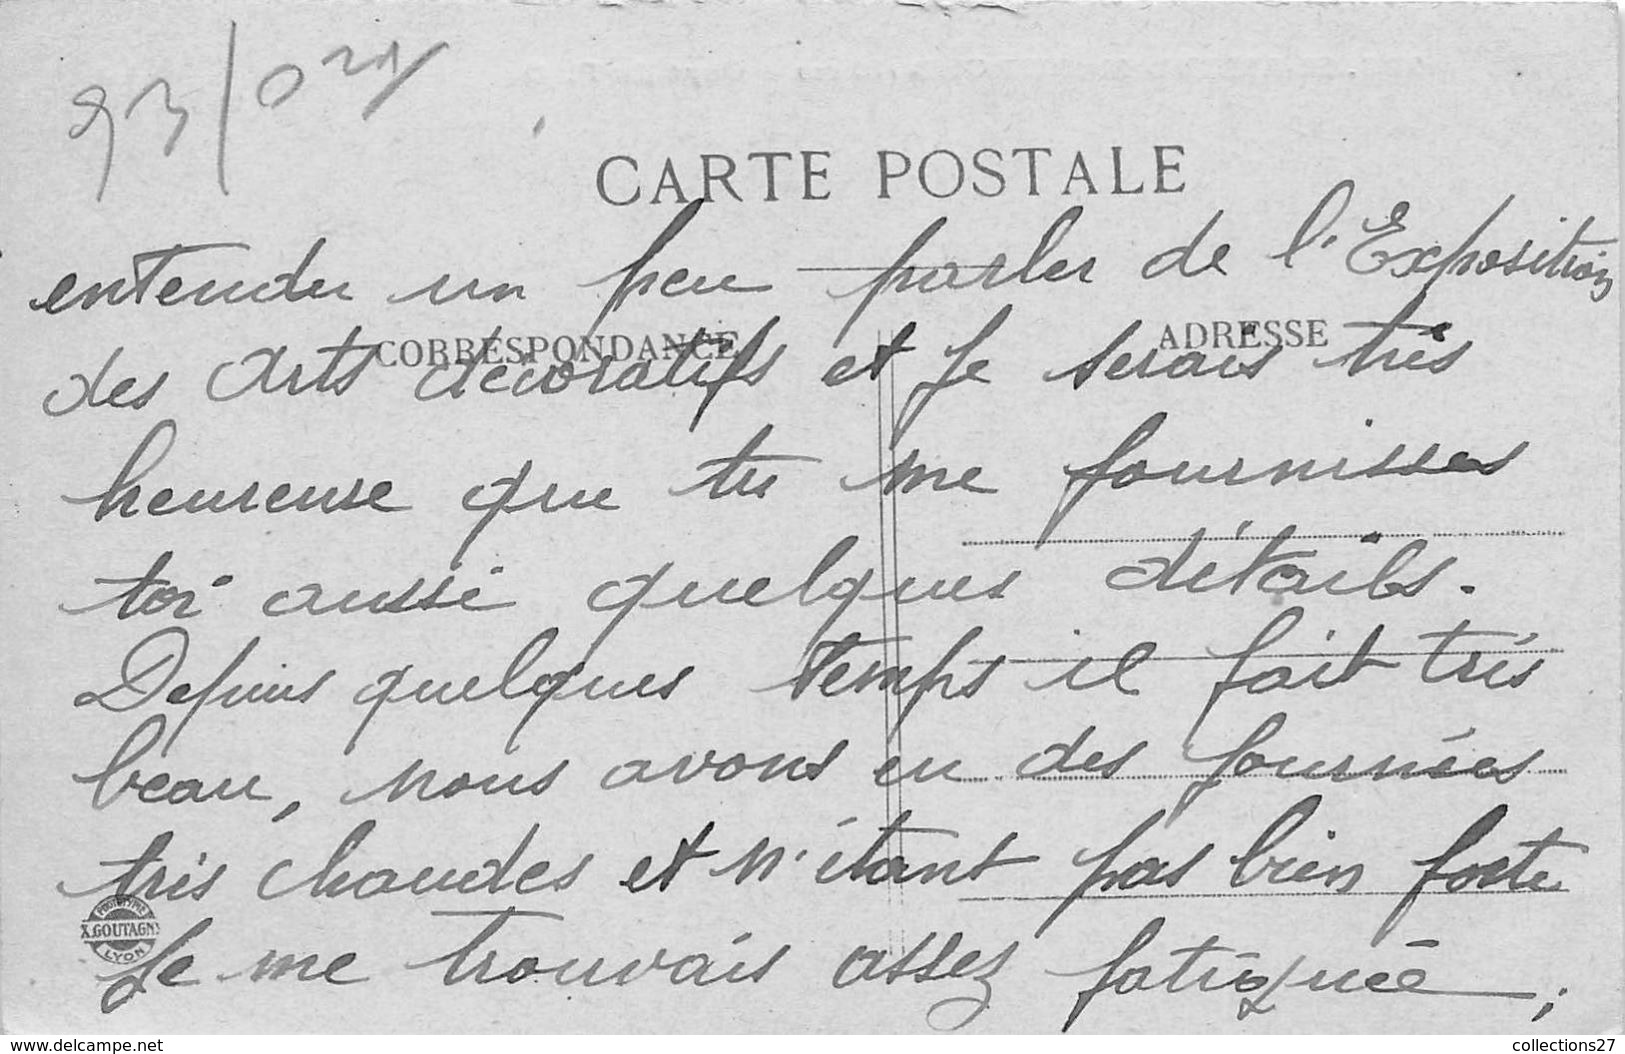 93/021
CARTE POSTALE
entendu un peu parler de l'Exposition
CORRESPONDANCE
ADRESSE
des arts décoratifs et je serais très
heureuse que tu me fournisses
toi aussi quelques détails.
Depuis quelques temps il fait très
beau, nous avons eu des journées
très chaudes et n'étant pas bien forte
PHOTOTYPIE
X.GOUTAGNY
LYON
je me trouvais assez fatiguée ;
www.delcampe.net
collections27